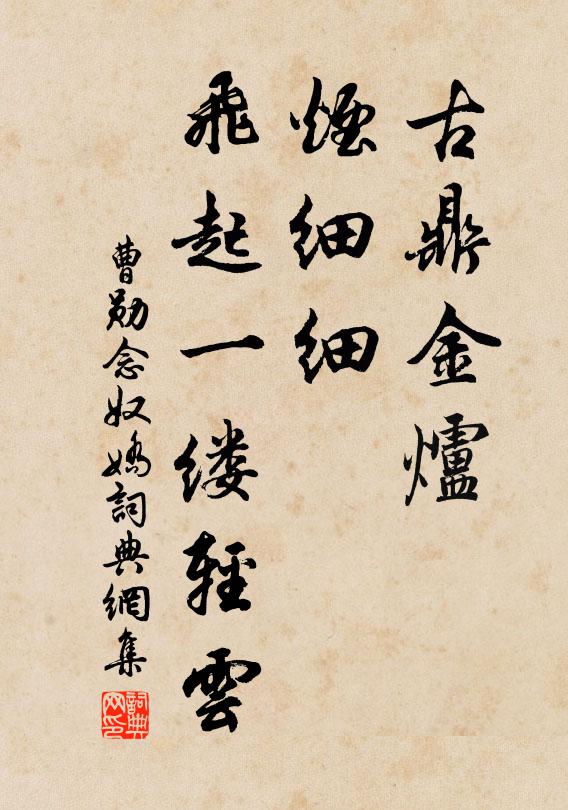 古鼎金爐
煙細細
飛起一缕輕雲
曹勋念奴嬌詞典網集
詞典网印